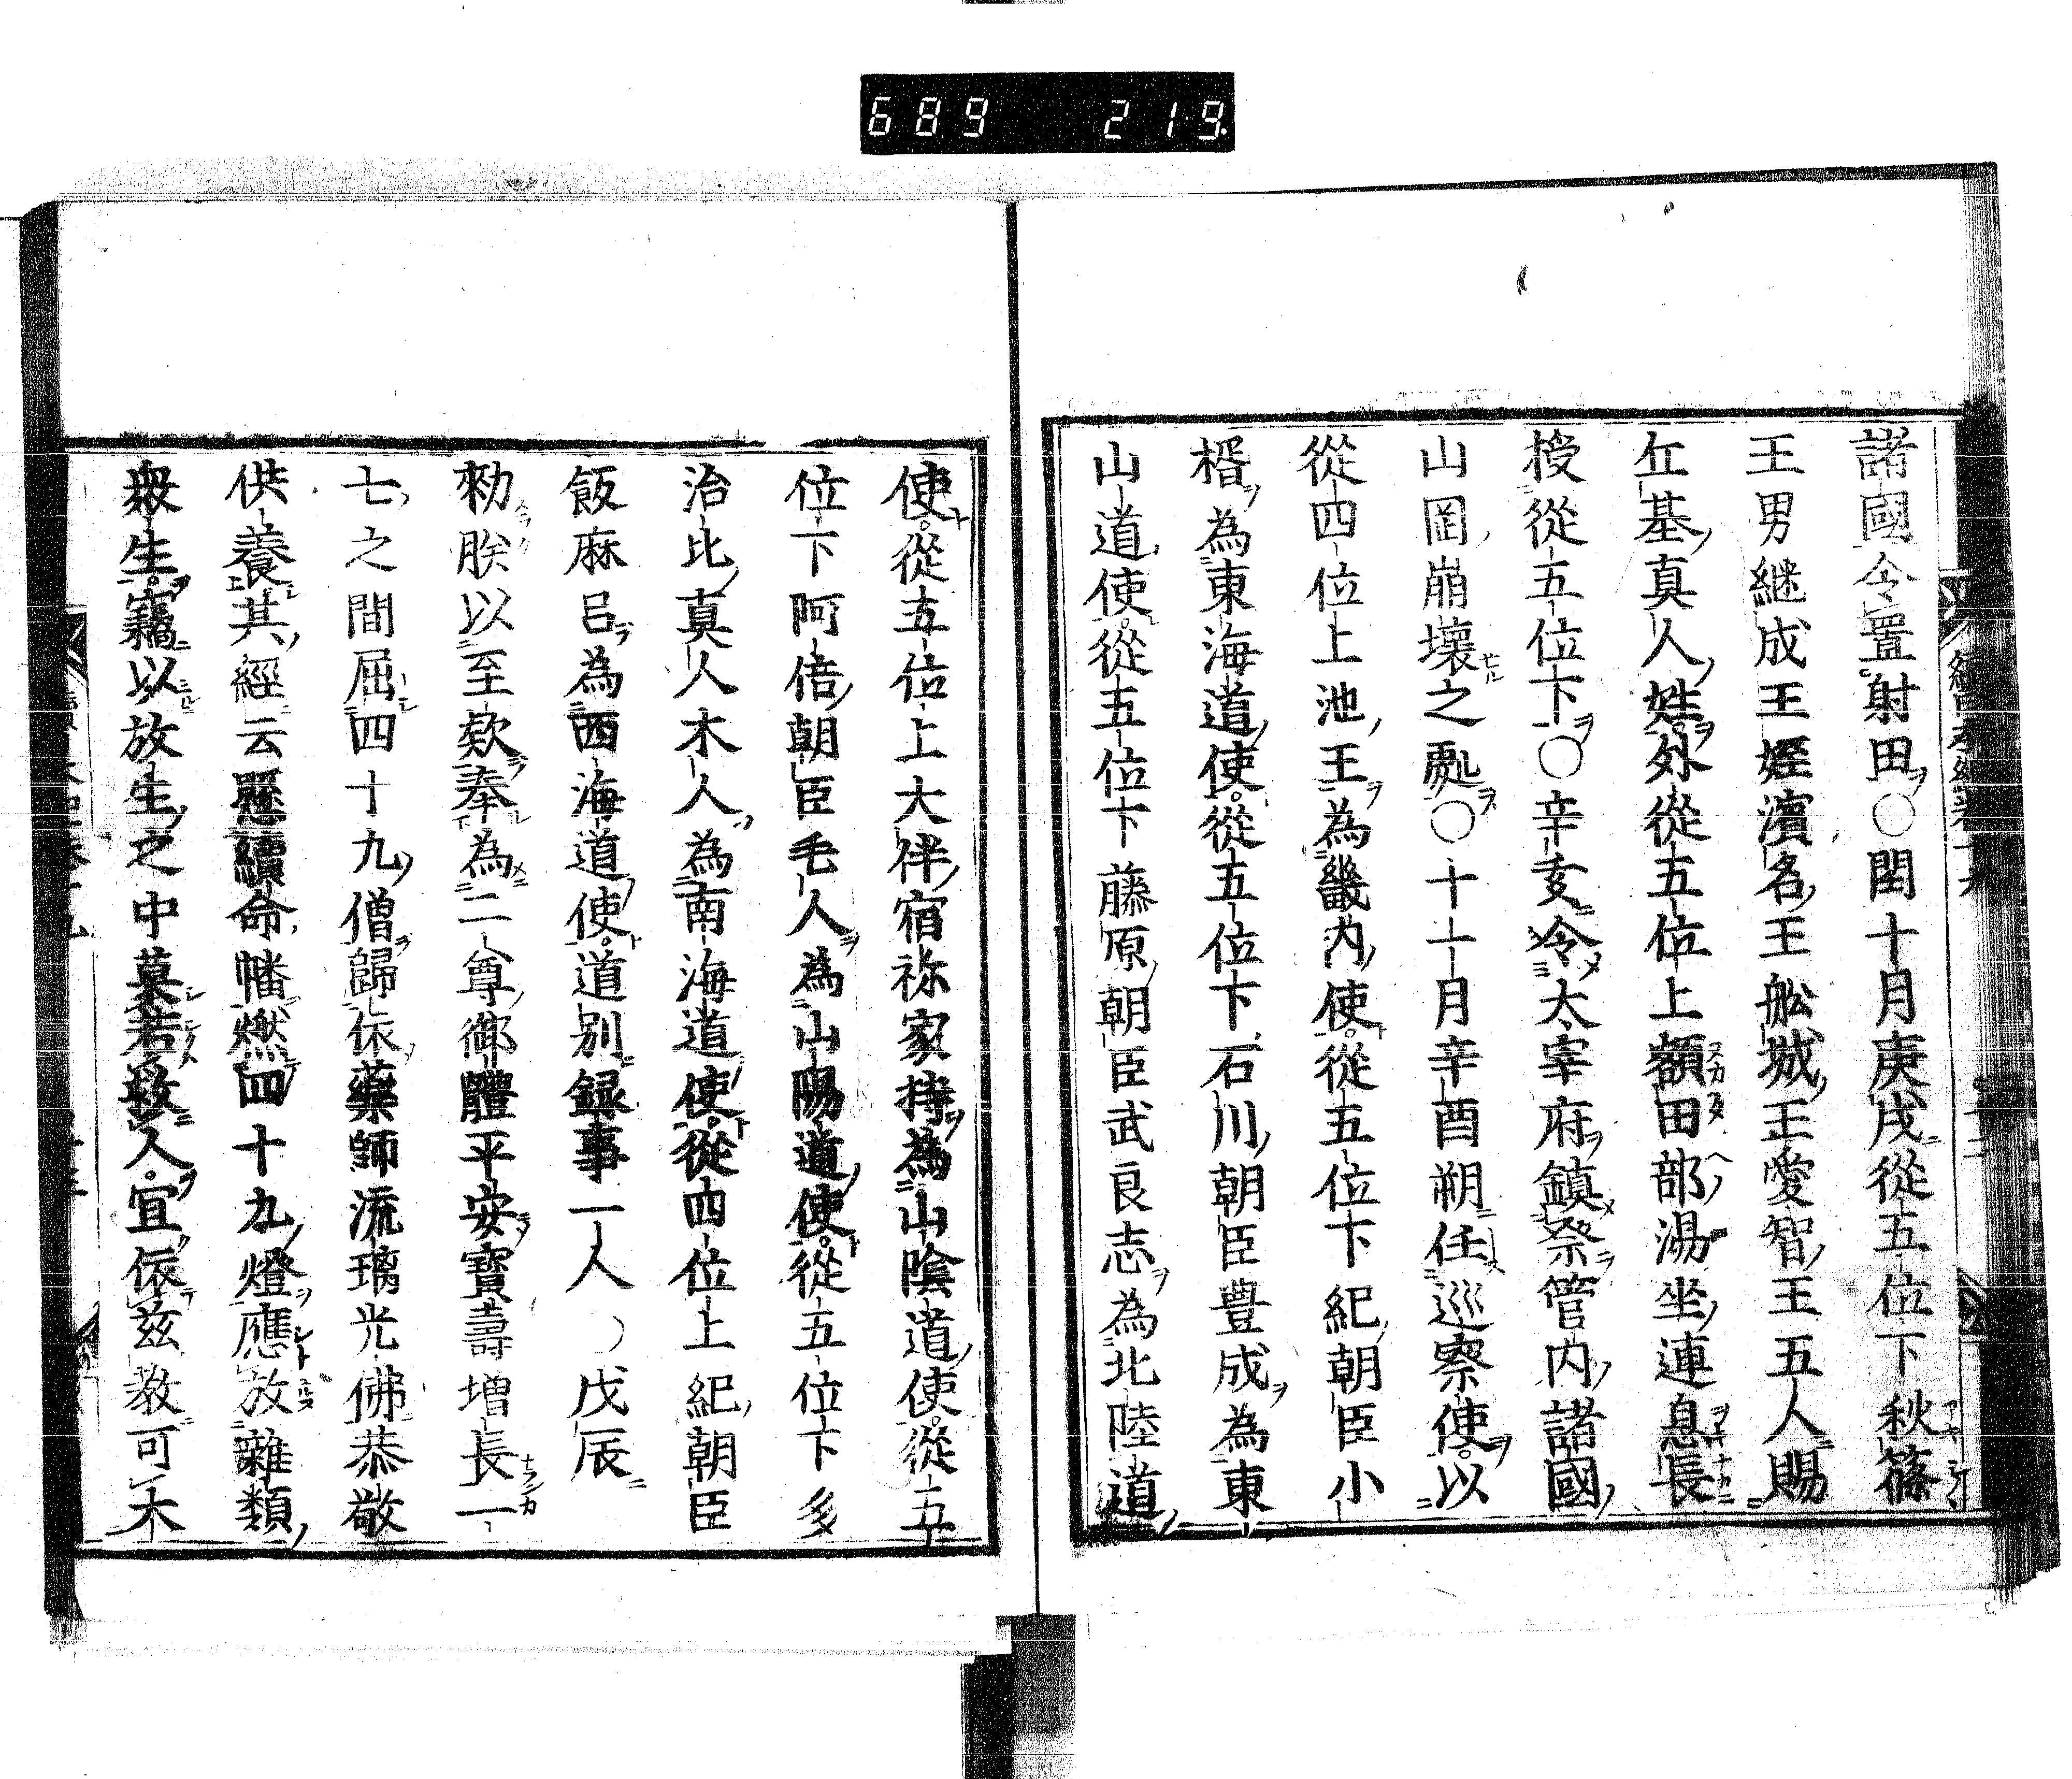 689 219
諸國令置射田○閏十月庚戌從五位下秋篠
王男継成王姪濱名王舩城王愛智王五人賜
丘基真人姓外從五位上額田部湯坐連息長
授從五位下○辛亥令大宰府鎮祭管内諸國
山岡崩壞之處○十一月辛酉朔任巡察使以
從四位上池王為畿内使從五位下紀朝臣小
楫為東海道使從五位下石川朝臣豊成為東
山道使從五位下藤原朝臣武良志為北陸道
使從五位上大伴宿祢家持為山陰道使從五
位下阿倍朝臣毛人為山陽道使從五位下多
治比真人木人為南海道使從四位上紀朝臣
飯麻呂為西海道使道別録事一人○戊辰
勅朕以至欵奉為二尊御體平安寶壽増長一
七之間屈四十九僧歸依藥師流璃光佛恭敬
供養其經云懸續命幡燃四十九燈應放雜類
衆生竊以放生之中莫若救人宜依茲教可大